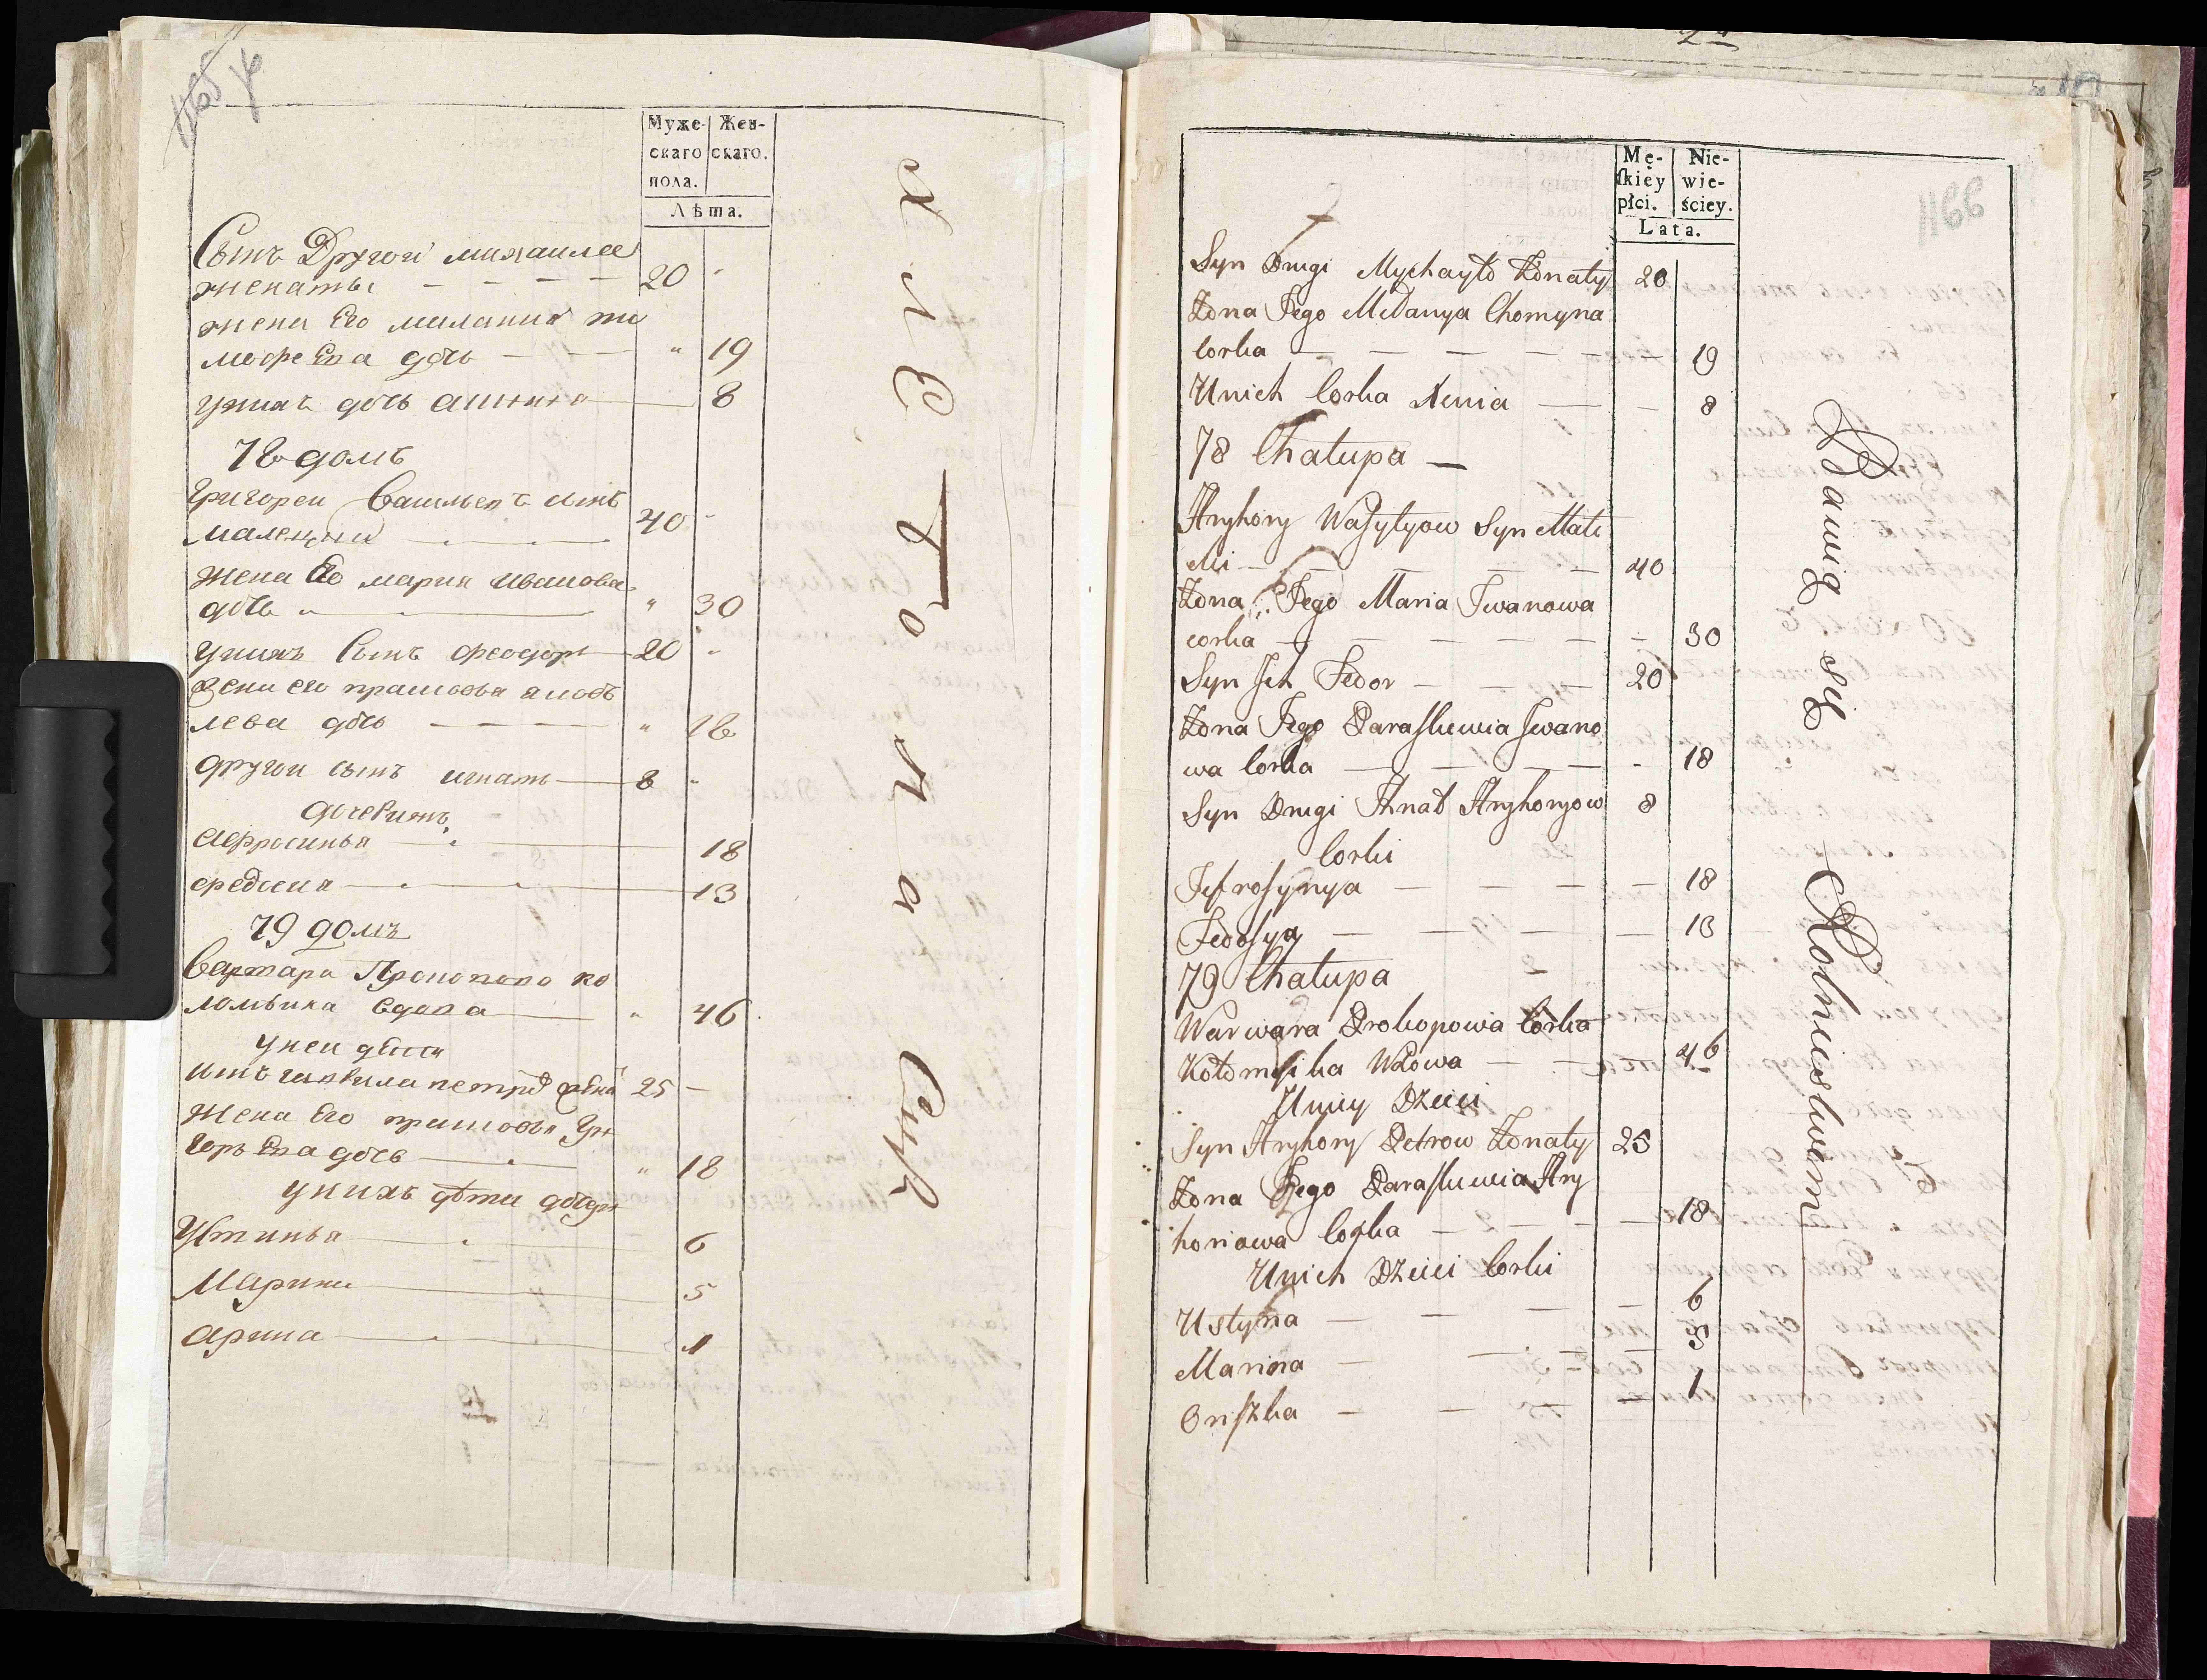 Муже-
скаго
пола.
Жен-
скаго.
Лѣта.
Сынъ Другой михаила
женаты 20
жена Его милания ти
мофеЕва дочь 19
унихъ дочь аксинья 8
78 домъ
Григореи Васильевъ сынъ
40
Жена Его мария иванова
дочь 30
унихъ Сынъ феодоръ 20
жена его прасковья
лева дочь 18
другои сынъ игнатъ 8
дочерихъ
афросинья 18
федосия 13
79 домъ
Варвара Прокопова ко
ломыика вдова 46
унеи дети
25
Жена Его прасковья Гри
горьЕва дочь 18
унихъ дѣти дочери
Устинья 6
Марина 5
арина 1
Mę-
skiey
płci.
Nie-
wie-
ściey.
Lata.
1166
Syn Drugi Mychayło Żonaty 20
Żona Jego Mełanya Chomyna
Corka 19
Unich Corka Xenia 8
78 Chałupa
Hryhory Wasylyow Syn Male
40
Żona Jego Maria Jwanowa
corka 30
Syn Jch Fedor 20
Żona Jego Paraskiewia Jwano
wa Corka 18
Syn Drugi Hnat Hryhoryow 8
Corki
Jefrosynya 18
Fedosya 13
79 Chałupa
Warwara Prokopowa Corka
Kołomyika Wdowa 46
Uniey Dzieci
Syn Hryhory Petrow Żonaty 25
Żona Jego Paraskiewia Hry
horiowa Corka 18
Unich Dzieci Corki
Ustyna 6
Marina 5
Oriszka 1
Bawią się Rolnicstwem